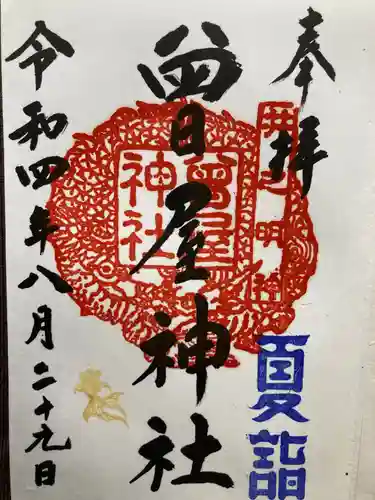 奉拝
曽屋神社
令和四年八月二十九日
夏詣
曽屋
神社